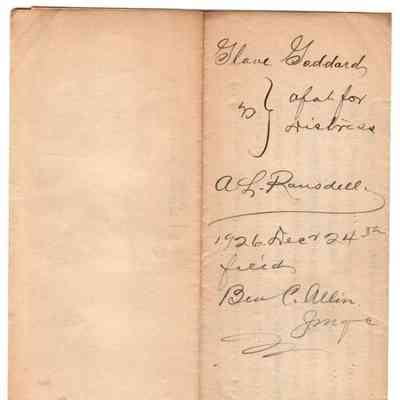 Glave Goddard
vs } afat for
Distress
A L. Ransdell.
1926 Decr 24th
fil'd
Ben C. Allin